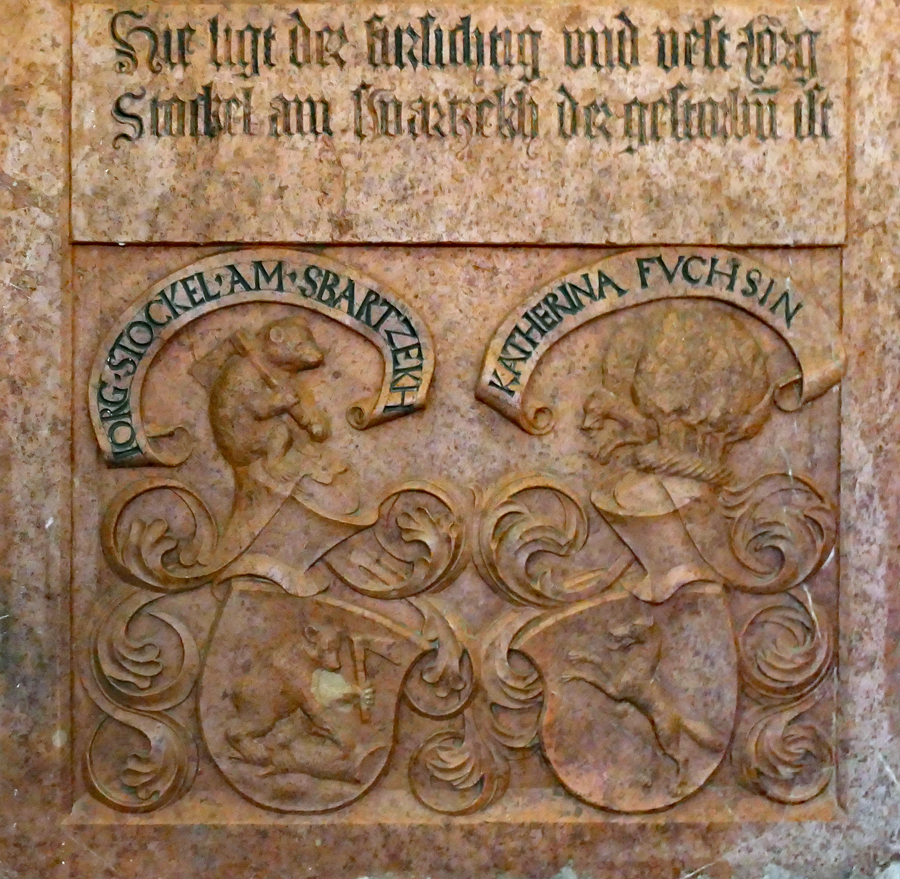 Hie ligt der fursichtig und vest Jorg
Stockel am Swartzekh der gestorbn̄ ist
IORG·STOCKEL·AM·SBARTZEKH
KATHERINA FVCHSIN